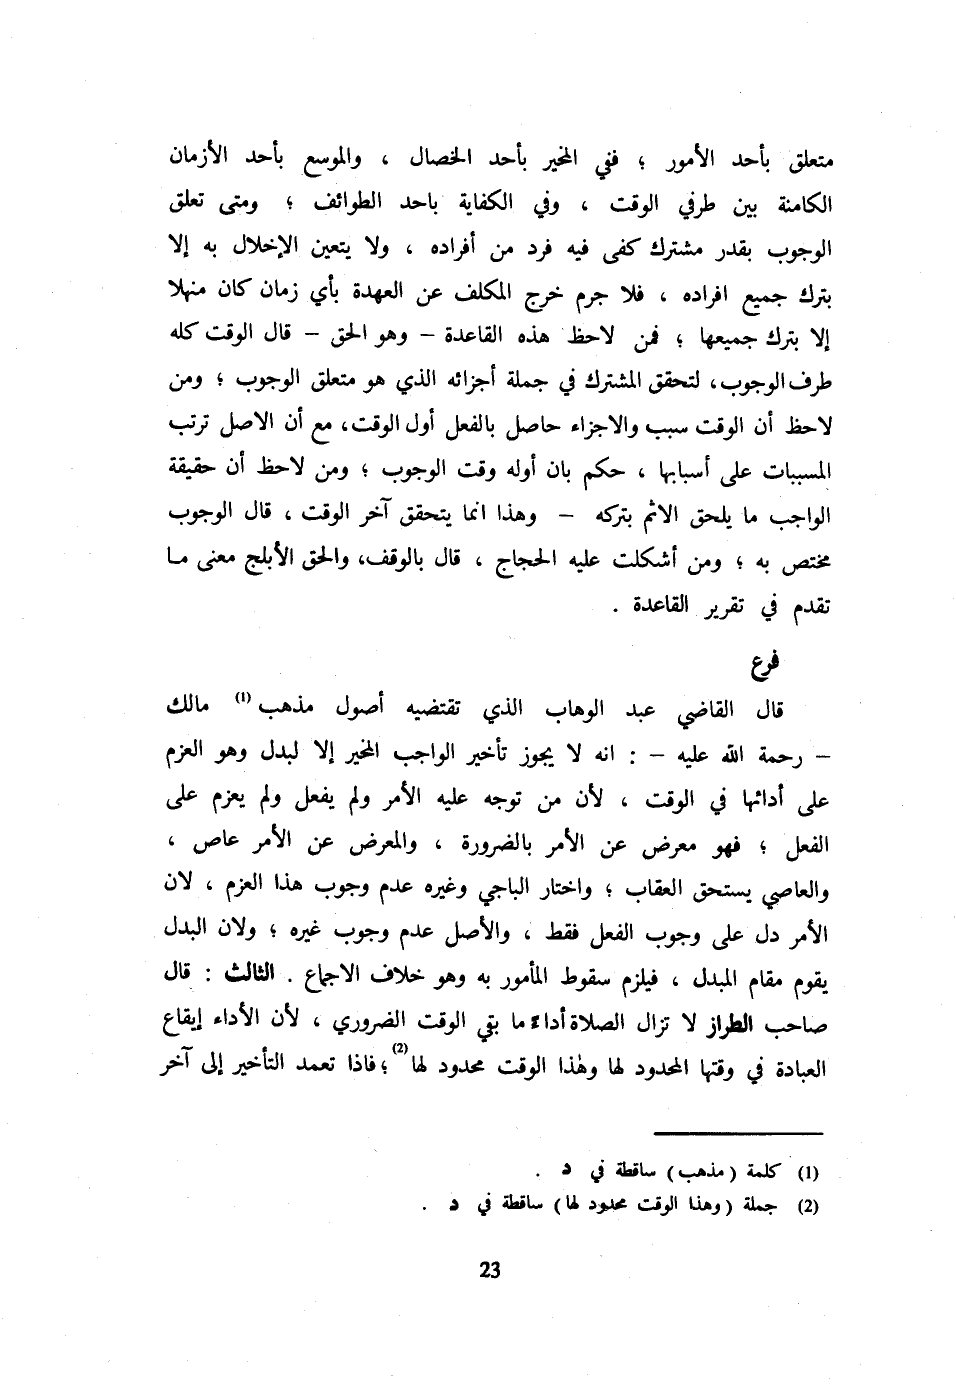 متعلق بأحد الأمور ؛ ففي المخير بأحد الخصال ، والموسع بأحد الأزمان
الكامنة بين طرفي الوقت ، وفي الكفاية باحد الطوائف ؛ ومتى تعلق
الوجوب بقدر مشترك كفى فيه فرد من أفراده ، ولا يتعين الإخلال به إلا
بترك جميع افراده ، فلا جرم خرج المكلف عن العهدة بأي زمان كان منهلا
إلا بترك جميعها ؛ فمن لاحظ هذه القاعدة – وهو الحق – قال الوقت كله
طرف الوجوب، لتحقق المشترك في جملة أجزائه الذي هو متعلق الوجوب ؛ ومن
لاحظ أن الوقت سبب والاجزاء حاصل بالفعل أول الوقت، مع أن الاصل ترتب
المسببات على أسبابها ، حكم بان أوله وقت الوجوب ؛ ومن لاحظ أن حقيقة
الواجب ما يلحق الاثم بتركه – وهذا انما يتحقق آخر الوقت ، قال الوجوب
مختص به ؛ ومن أشكلت عليه الحجاج ، قال بالوقف، والحق الأبلج معنى مـا
تقدم في تقرير القاعدة .
فرع
قال القاضي عبد الوهاب الذي تقتضيه أصول مذهب (1) مالك
– رحمة الله عليه – : انه لا يجوز تأخير الواجب المخير إلا لبدل وهو العزم
على أدائها في الوقت ، لأن من توجه عليه الأمر ولم يفعل ولم يعزم على
الفعل ؛ فهو معرض عن الأمر بالضرورة ، والمعرض عن الأمر عاص ،
والعاصي يستحق العقاب ؛ واختار الباجي وغيره عدم وجوب هذا العزم ، لان
الأمر دل على وجوب الفعل فقط ، والأصل عدم وجوب غيره ؛ ولان البدل
يقوم مقام المبدل ، فيلزم سقوط المأمور به وهو خلاف الاجماع . الثالث : قال
صاحب الطراز لا تزال الصلاة أداء ما بقي الوقت الضروري ، لأن الأداء إيقاع
العبادة في وقتها المحدود لها وهذا الوقت محدود لها (2) ؛ فاذا تعمد التأخير إلى آخر
(1) كلمة ( مذهب ) ساقطة في د .
(2) جملة ( وهذا الوقت محدود لها ) ساقطة في د .
23